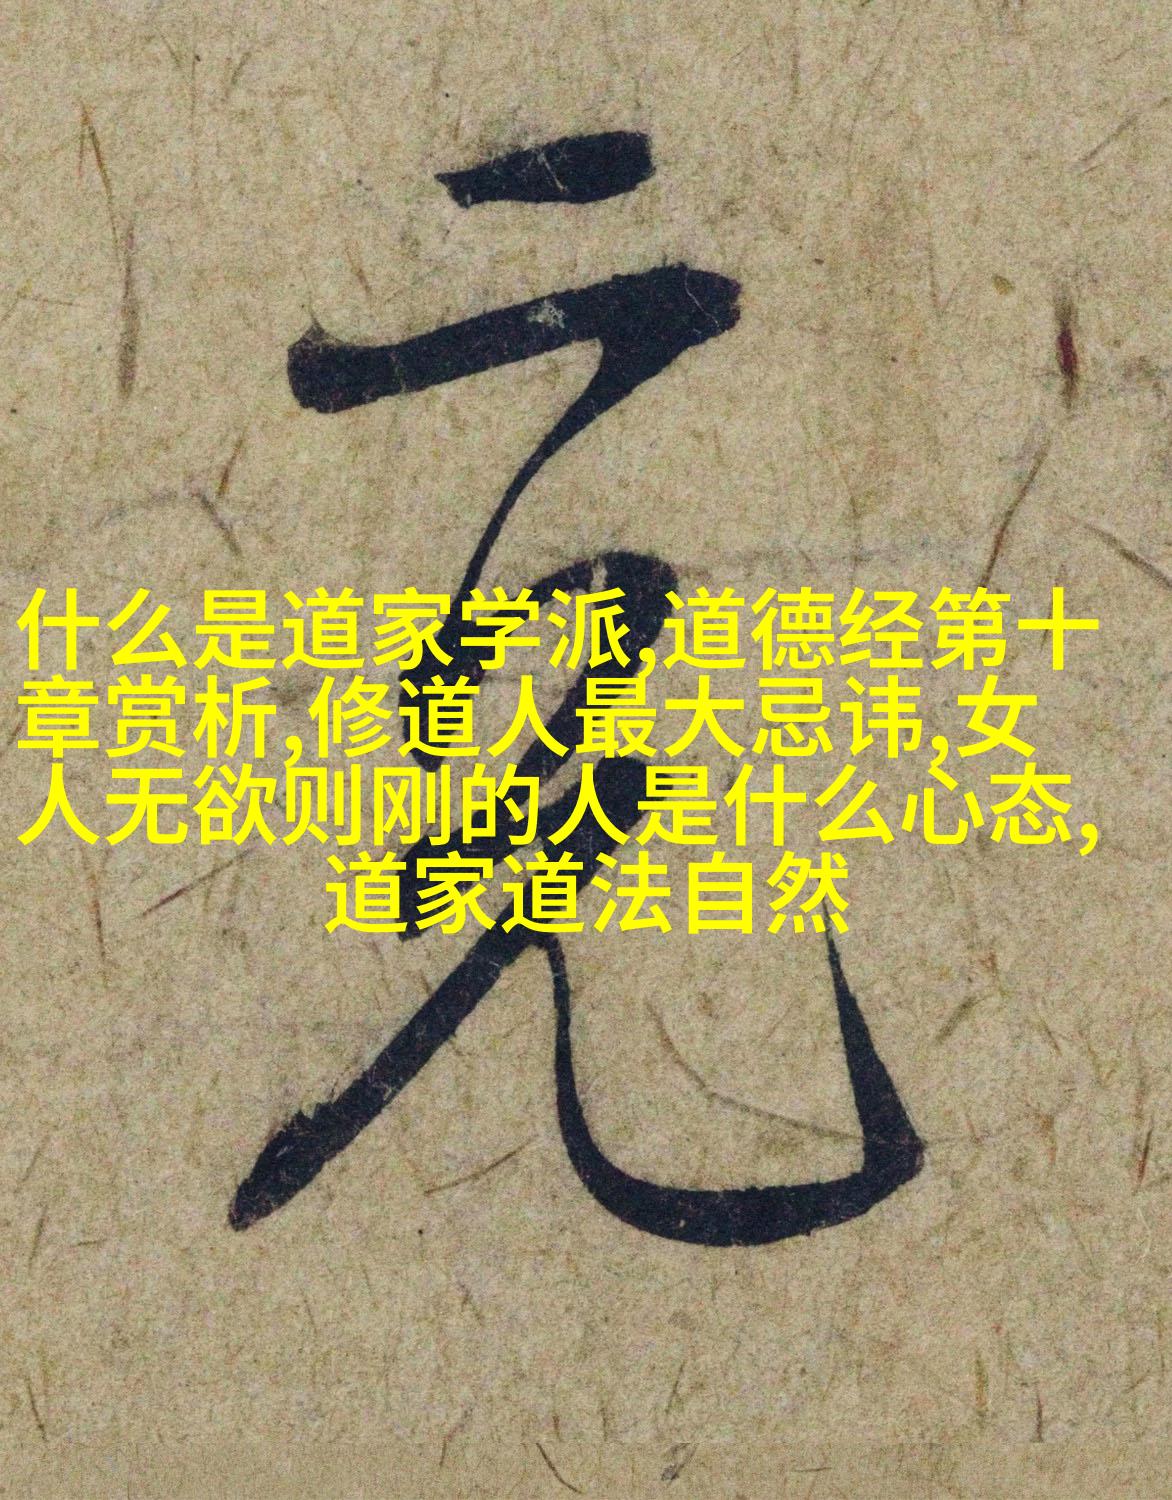 什么是道家学派,道德经第十
章赏析,修道人最大忌讳,女
人无欲则刚的人是什么心态,
道家道法自然